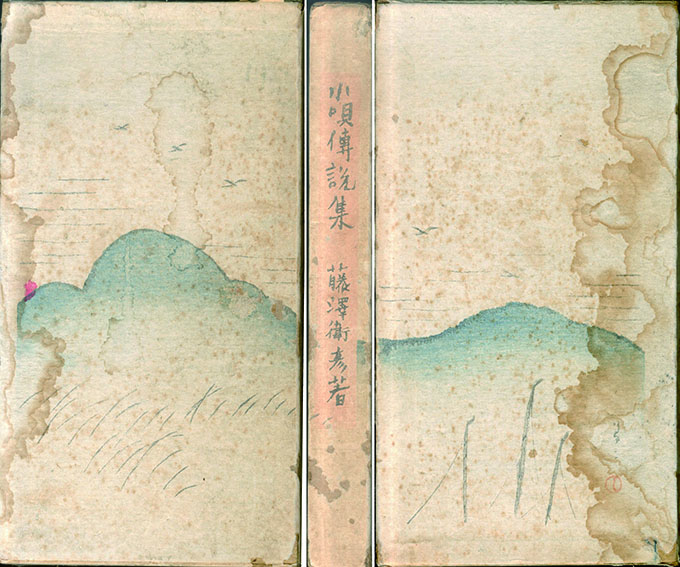 小唄傳説集
藤澤衛彦著